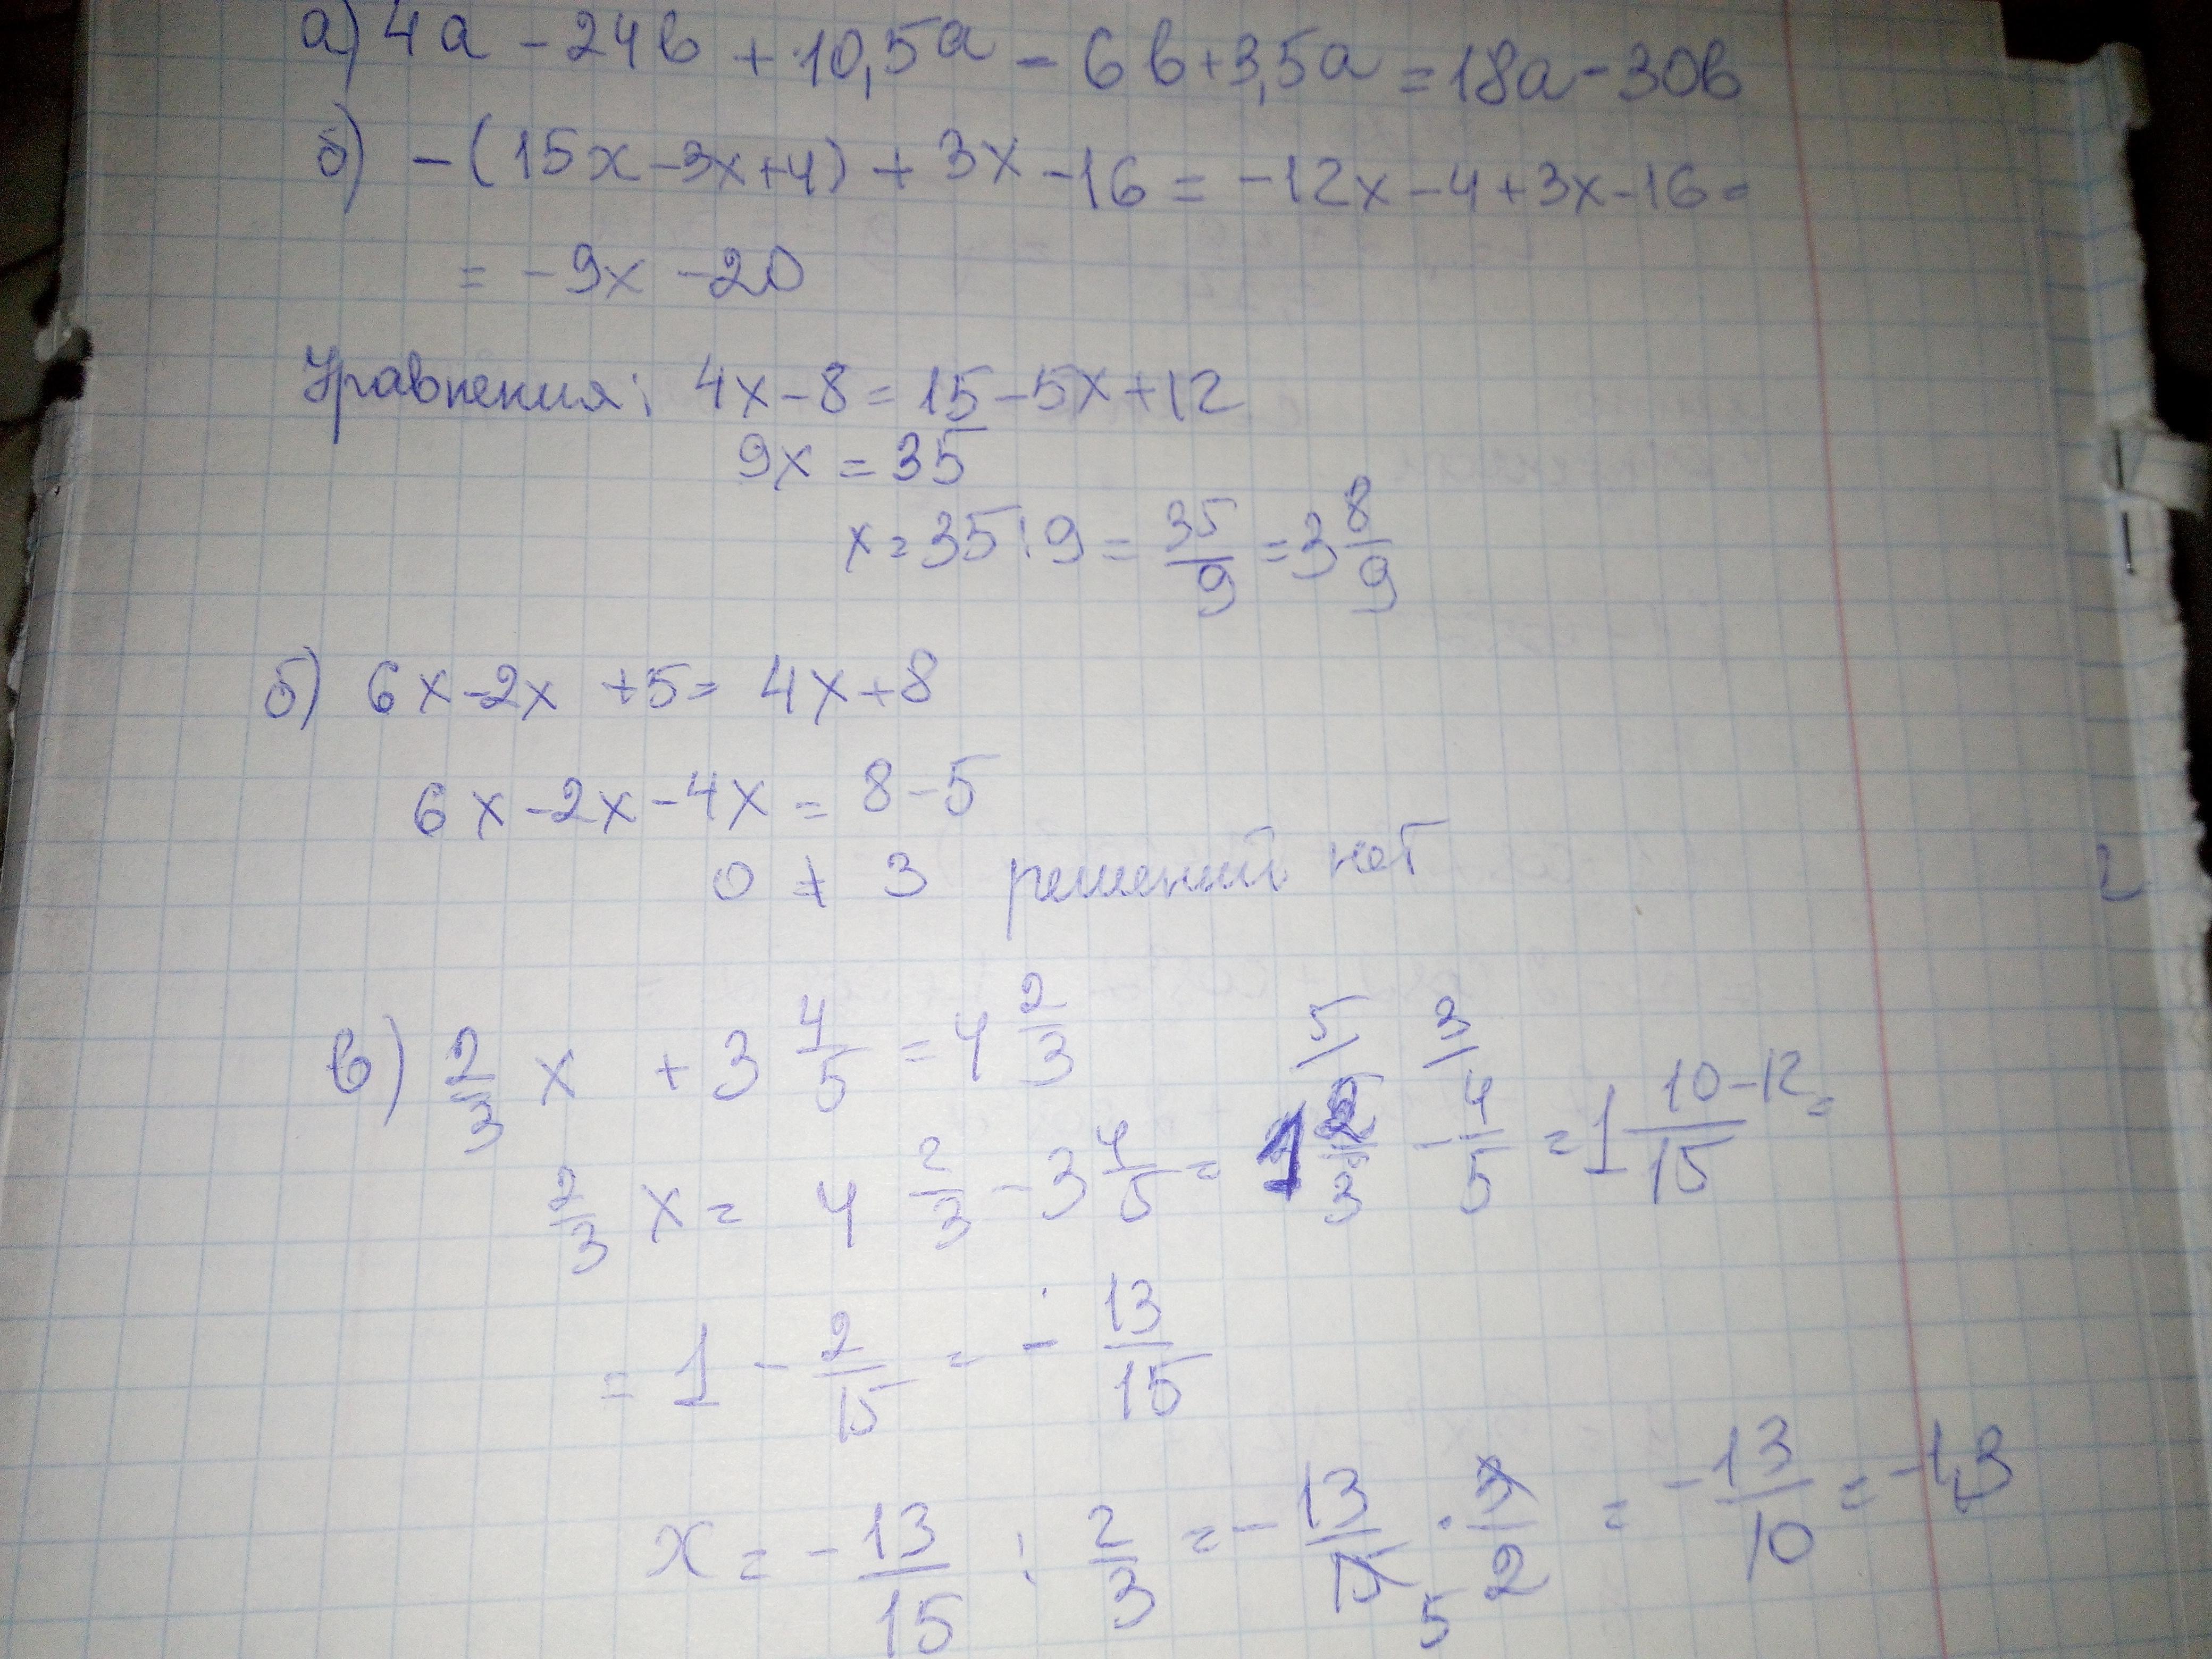 а) 4а - 24в + 10,5а - 6в + 3,5а = 18а - 30в
б) -(15x - 3x + 4) + 3x - 16 = -12x - 4 + 3x - 16 =
= -9x - 20
Уравнения: 4x - 8 = 15 - 5x + 12
9x = 35
x = 35 : 9 = 35/9 = 3 8/9
б) 6x - 2x + 5 = 4x + 8
6x - 2x - 4x = 8 - 5
0 ≠ 3 решений нет
в) 2/3 x + 3 4/5 = 4 2/3
2/3 x = 4 2/3 - 3 4/5 = 1 5/ 2/3 - 3/ 4/5 = 1 10-12/15 =
= 1 - 2/15 = - 13/15
x = - 13/15 : 2/3 = - 13/15 5 · 3/2 = - 13/10 = -1,3